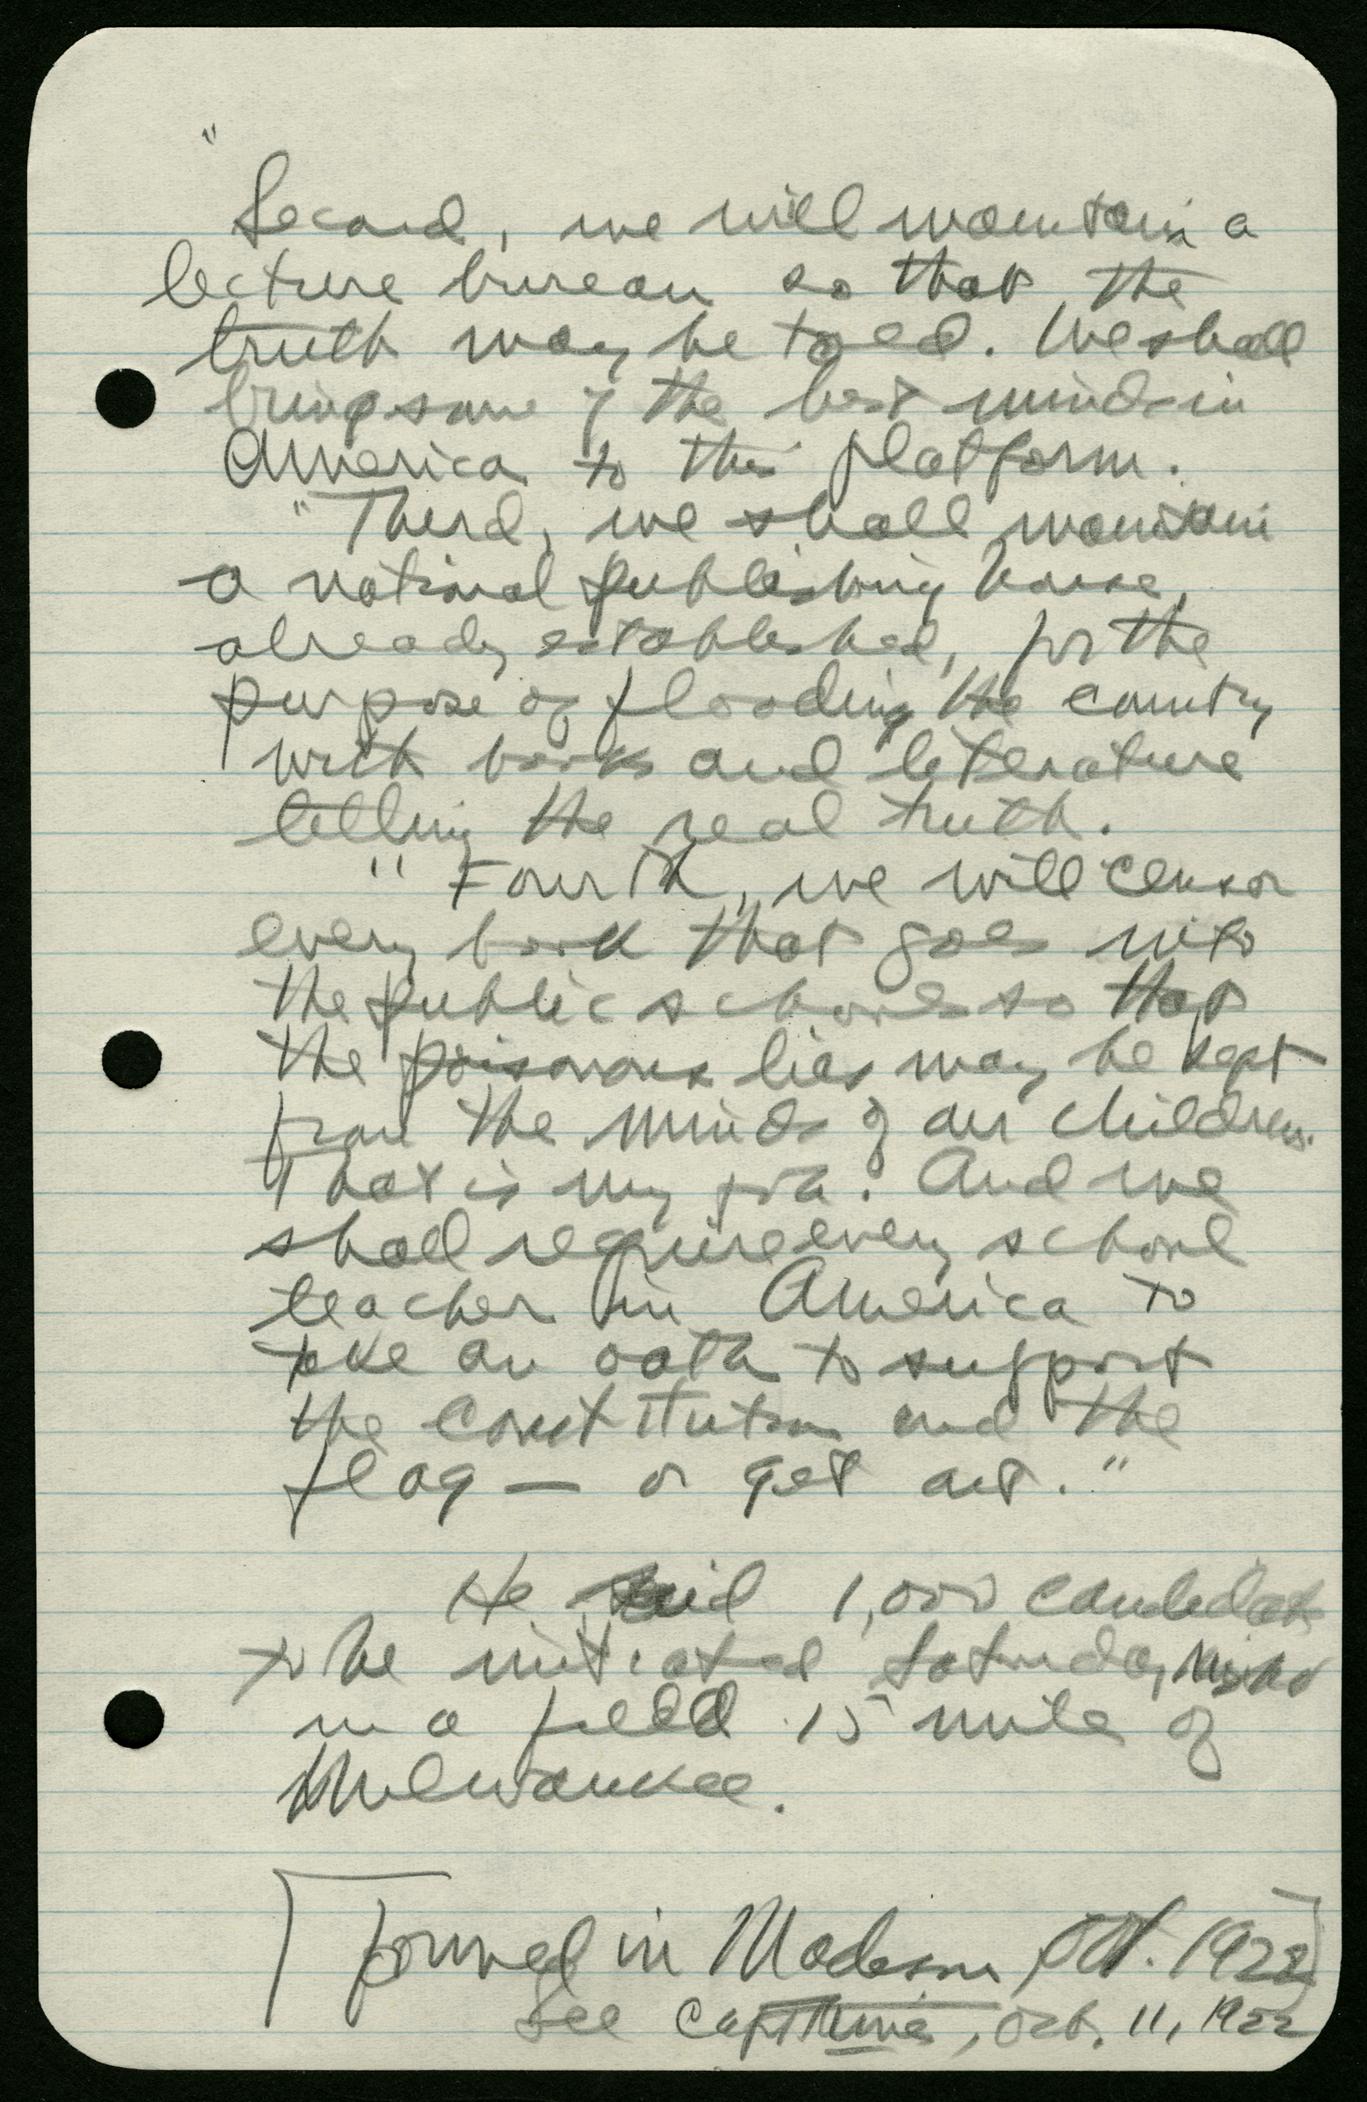 "
Second, we will maintain a
lecture bureau so that the
truth may be told. We shall
bring some of the best minds in
America to this platform.
"Third, we shall maintain
a national publishing house,
already established, for the
purpose of flooding the country
with books and literature
telling the real truth.
"Fourth, we will censor
every book that goes into
the public schools so that
the poisonous lies may be kept
from the minds of our children.
That is my job. And we
shall require every school
teacher in America to
take an oath to support
the Constitution and the
flag — or get out."
He said 1,000 candidates
to be initiated Saturday night
in a field 15 mile of
Milwaukee.
[Formed in Madison, Oct. 1922]
See CapTimes, Oct. 11, 1922